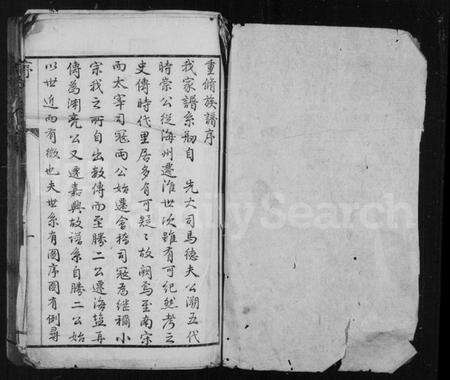 重脩族譜序
我家譜系舠自 先大司馬德夫公溯五代
時榮公從海州遷淮世次雖有可紀然考之
史傳時代里居多有可疑〻故闕焉至南宋
而太宰司冠兩公始遷會稽司冠為繼禰小
宗我之所自出數傳而至勝二公遷海鹽再
傳為淵亮公又遷嘉興故譜系自勝二公始
以世近而有徵也夫世系有圖序圖有例尋
序
FamilySearch